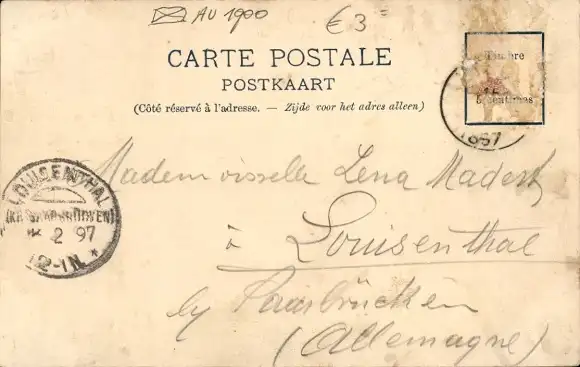 AU 1900
€ 3=
CARTE POSTALE
POSTKAART
(Côté réservé à l'adresse. — Zijde voor het adres alleen)
Timbre
5 centimes
1897
LOUISENTHAL
2 97
12-1N.*
Mademoiselle Lena Madert
à Louisenthal
by Saarbrücken
(Allemagne)